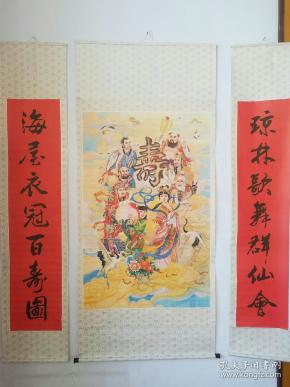 琼林歌舞群仙会
寿
海屋衣冠百寿图
孔夫子旧书网